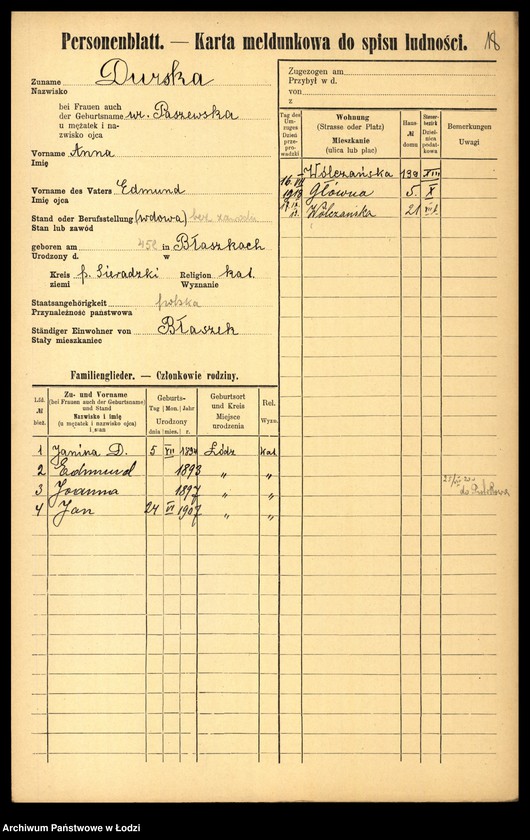 Personenblatt. — Karta meldunkowa do spisu ludności.
18
Zuname Durska
Nazwisko
bei Frauen auch
der Geburtsname wr. Paszewska
u mężatek i na-
zwisko ojca
Vorname Anna
Imię
Vorname des Vaters Edmund
Imię ojca
Stand oder Berufsstellung (wdowa) bez zawodu
Stan lub zawód
geboren am 45l. in Błaszkach
Urodzony d. w
Kreis p. Sieradzki Religion kat.
ziemi Wyznanie
Staatsangehörigkeit polska
Przynależność państwowa
Ständiger Einwohner von Błaszek
Stały mieszkaniec
Familienglieder. — Członkowie rodziny.
Lfd. № bież.
Zu- und Vorname
(bei Frauen auch der Geburtsname)
und Stand
Nazwisko i imię
(u mężatek i nazwisko ojca)
i stan
Geburts-
Tag Mon. Jahr
Urodzony
dnia mies. r.
Geburtsort
und Kreis
Miejsce
urodzenia
Rel.
Wyzn.
1 Janina D. 5 VII 1894 Łódz kat
2 Edmund 1893 " "
3 Joanna 1897 " "
4 Jan 24 VI 1907 " "
Zugezogen am
Przybył w d.
von
z
Tag des
Um-
zuges
Dzień
prze-
pro-
wadzki
Wohnung
(Strasse oder Platz)
Mieszkanie
(ulica lub plac)
Haus-
№
domu
Steuer-
bezirk
Dziel-
nica
podat-
kowa
Bemerkungen
Uwagi
— Wólczańska 139 XIII
16. VII 1918 Główna 5. X
Wólczańska 21
Archiwum Państwowe w Łodzi